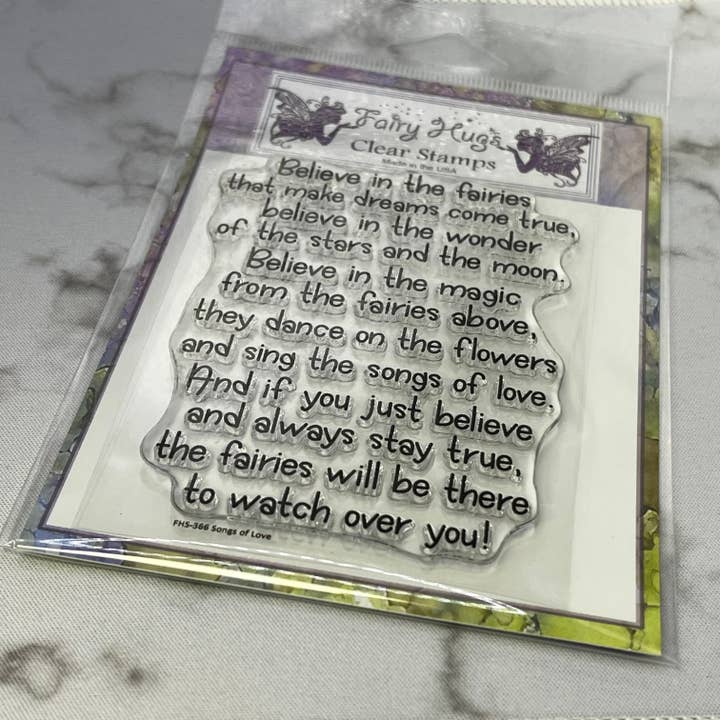 Fairy Hugs
Clear Stamps
Made in the USA
Believe in the fairies
that make dreams come true,
believe in the wonder
of the stars and the moon,
Believe in the magic
from the fairies above,
they dance on the flowers
and sing the songs of love,
And if you just believe
and always stay true,
the fairies will be there
to watch over you!
FHS-366 Songs of Love